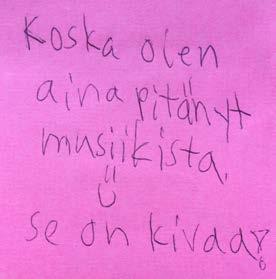 Koska olen
aina pitänyt
musiikista.
se on kivaa!